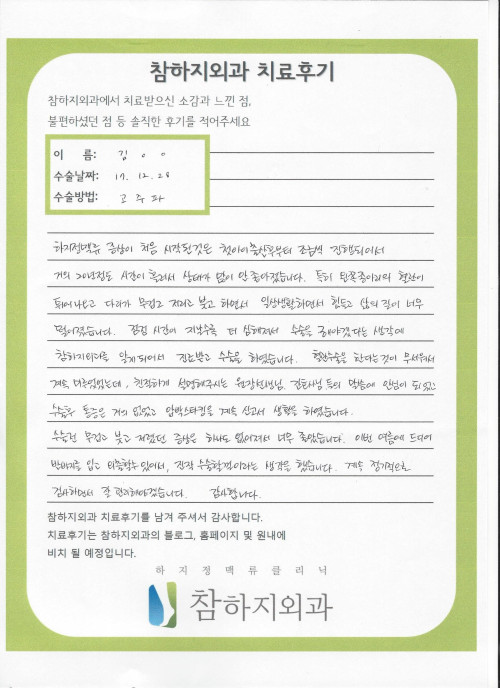 참하지외과 치료후기
참하지외과에서 치료받으신 소감과 느낀 점,
불편하셨던 점 등 솔직한 후기를 적어주세요
이 름: 김 ㅇ ㅇ
수술날짜: 17. 12. 28
수술방법: 고 주 파
하지정맥류 증상이 처음 시작된것은 첫아이 출산후부터 조금씩 진행되어서
거의 20년정도 시간이 흘러서 상태가 많이 안 좋아졌습니다. 특히 왼쪽종아리의 혈관이
튀어나오고 다리가 무겁고 저리고 붓고 하면서 일상생활하면서 힘들고 삶의 질이 너무
떨어졌습니다. 점점 시간이 지날수록 더 심해져서 수술을 해야겠다는 생각에
참하지외과를 알게되어서 진료받고 수술을 하였습니다. 혈관수술을 한다는것이 무서워서
계속 미루었었는데, 친절하게 설명해주시는 원장선생님, 간호사님 등의 말씀에 안심이 되었고
수술후 통증은 거의 없었고 압박스타킹을 계속 신고서 생활을 하였습니다.
수술전 무겁고 붓고 저렸던 증상은 하나도 없어져서 너무 좋았습니다. 이번 여름에 드디어
반바지를 입고 외출할수 있어서, 진작 수술할껄이라는 생각을 했습니다. 계속 정기적으로
검사하면서 잘 관리해야겠습니다. 감사합니다.
참하지외과 치료후기를 남겨 주셔서 감사합니다.
치료후기는 참하지외과의 블로그, 홈페이지 및 원내에
비치 될 예정입니다.
하지정맥류클리닉
참하지외과